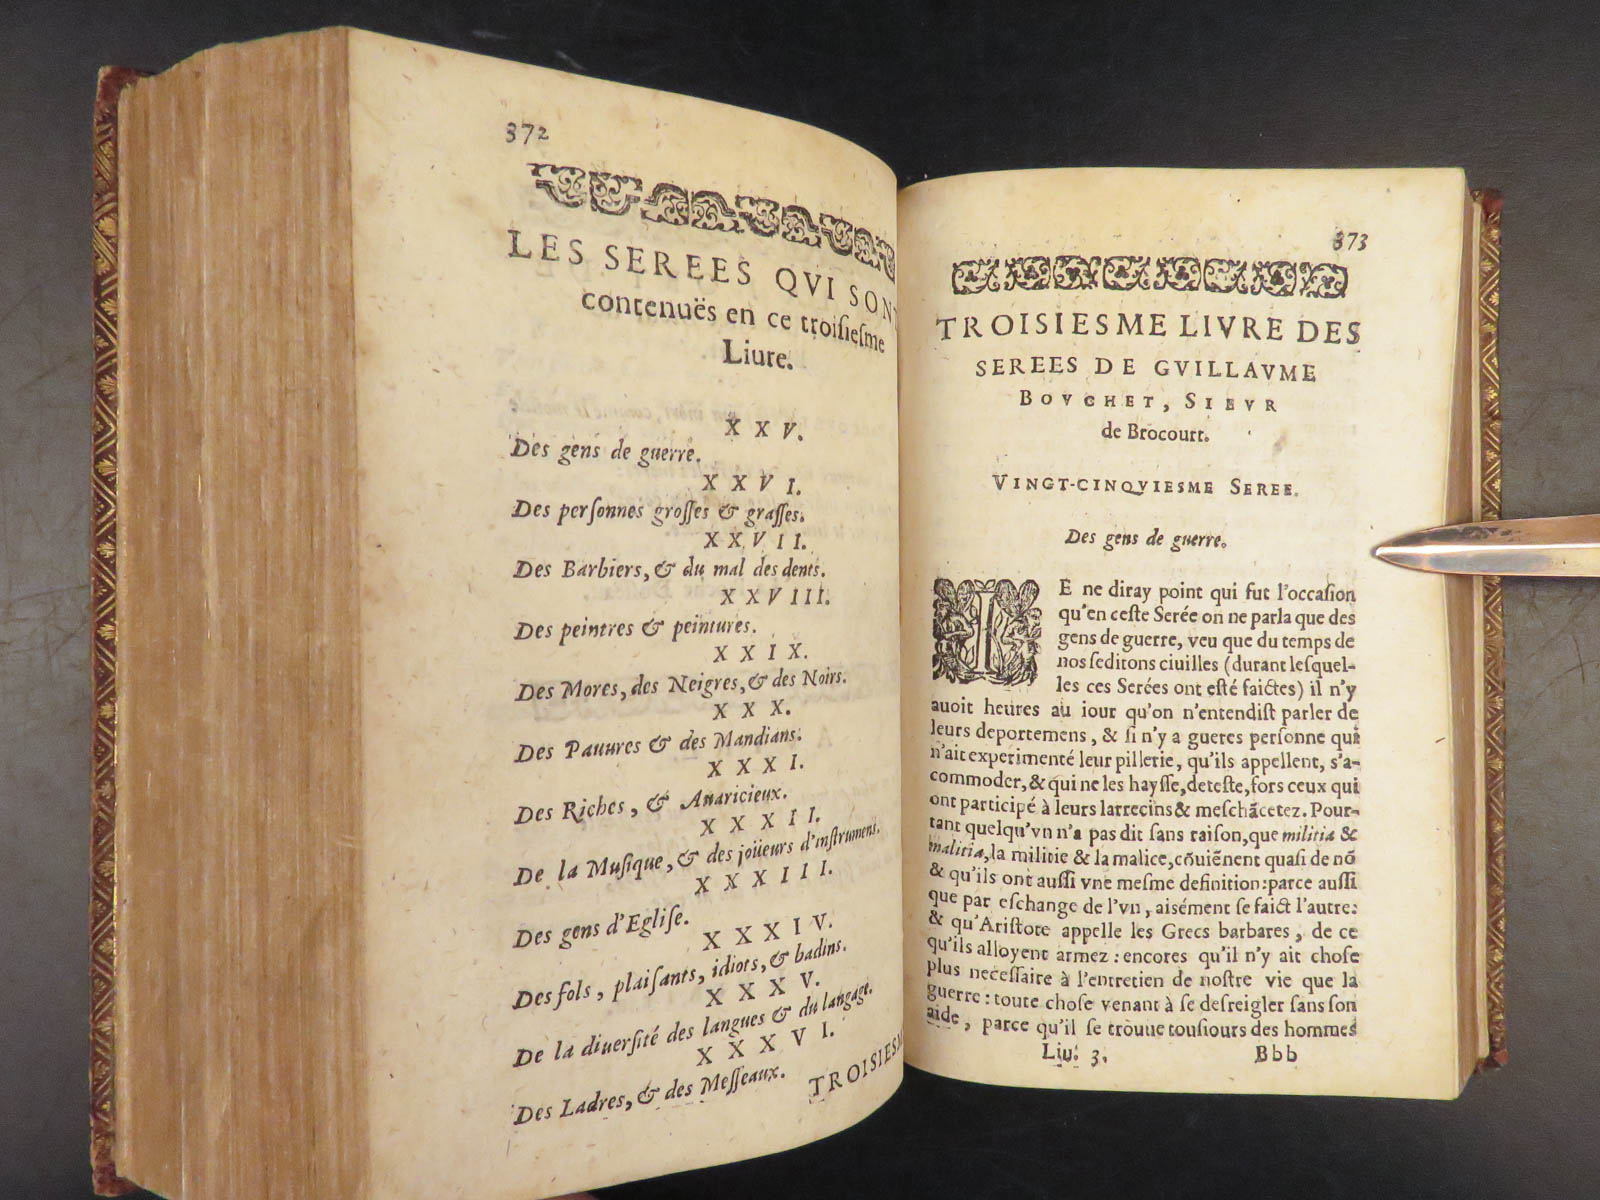 372
LES SEREES QVI SON
contenuës en ce troiſieſme
Liure.
X X V.
Des gens de guerre.
X X V I.
Des perſonnes groſſes & graſſes.
X X V I I.
Des Barbiers, & du mal des dents.
X X V I I I.
Des peintres & peintures.
X X I X.
Des Mores, des Neigres, & des Noirs.
X X X.
Des Pauures & des Mandians.
X X X I.
Des Riches, & Auaricieux.
X X X I I.
De la Muſique, & des joüeurs d'inſtrumens.
X X X I I I.
Des gens d'Egliſe.
X X X I V.
Des fols, plaiſants, idiots, & badins.
X X X V.
De la diuerſité des langues & du langage.
X X X V I.
Des Ladres, & des Meſſeaux.
TROISIESM
373
TROISIESME LIVRE DES
SEREES DE GVILLAVME
BOVCHET, SIEVR
de Brocourt.
VINGT-CINQVIESME SEREE.
Des gens de guerre.
IE ne diray point qui fut l'occaſion
qu'en ceſte Serée on ne parla que des
gens de guerre, veu que du temps de
nos ſeditons ciuilles (durant leſquel-
les ces Serées ont eſté faictes) il n'y
auoit heures au iour qu'on n'entendiſt parler de
leurs deportemens, & ſi n'y a gueres perſonne qui
n'ait experimenté leur pillerie, qu'ils appellent, s'a-
commoder, & qui ne les hayſſe, deteſte, fors ceux qui
ont participé à leurs larrecins & meſchãcetez. Pour-
tant quelqu'vn n'a pas dit ſans raiſon, que militia &
malitia, la militie & la malice, cõuiẽnent quaſi de nõ
& qu'ils ont auſſi vne meſme definition: parce auſſi
que par eſchange de l'vn, aisément ſe faict l'autre:
& qu'Ariſtote appelle les Grecs barbares, de ce
qu'ils alloyent armez: encores qu'il n'y ait choſe
plus neceſſaire à l'entretien de noſtre vie que la
guerre: toute choſe venant à ſe deſreigler ſans ſon
aide, parce qu'il ſe trouue touſiours des hommes
Liu. 3. Bbb